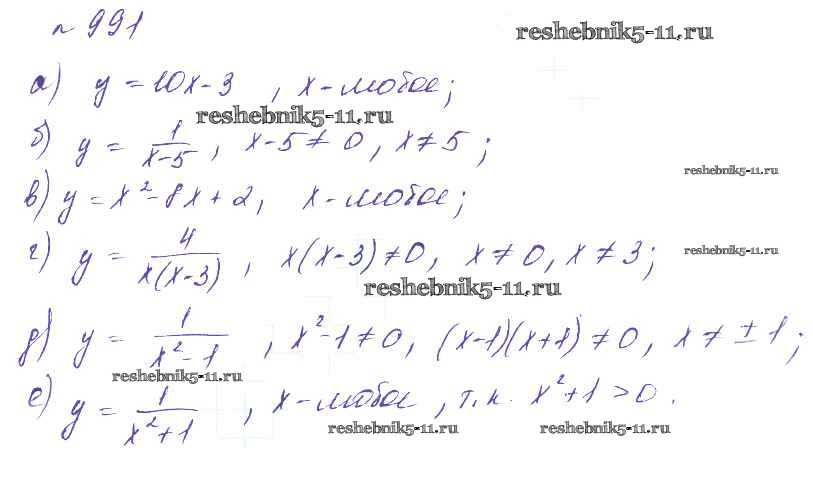 № 991
reshebnik5-11.ru
а) y = 10x - 3, x - любое;
reshebnik5-11.ru
б) y = 1/(x-5), x-5 ≠ 0, x ≠ 5;
reshebnik5-11.ru
в) y = x² - 8x + 2, x - любое;
г) y = 4/(x(x-3)), x(x-3) ≠ 0, x ≠ 0, x ≠ 3;
reshebnik5-11.ru
reshebnik5-11.ru
д) y = 1/(x²-1), x²-1 ≠ 0, (x-1)(x+1) ≠ 0, x ≠ ± 1;
reshebnik5-11.ru
е) y = 1/(x²+1), x - любое, т.к. x²+1 > 0.
reshebnik5-11.ru reshebnik5-11.ru